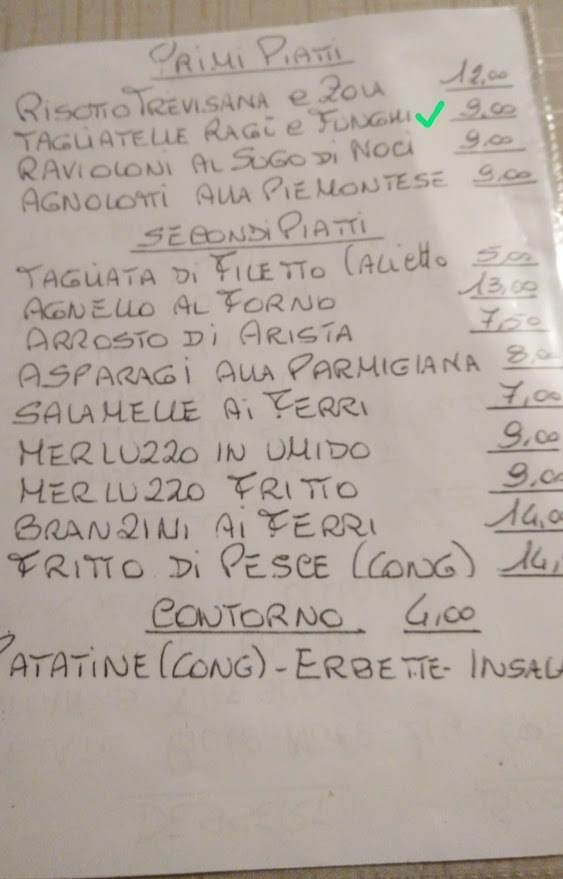 PRIMI PIATTI
RISOTTO TREVISANA e ZOLA 12,00
TAGLIATELLE RAGÙ e FUNGHI 9,00
RAVIOLONI AL SUGO DI NOCI 9,00
AGNOLOTTI ALLA PIEMONTESE 9,00
SECONDI PIATTI
TAGLIATA DI FILETTO (ALL'etto 5,00
AGNELLO AL FORNO 13,00
ARROSTO DI ARISTA 7,50
ASPARAGI ALLA PARMIGIANA 8,00
SALAMELLE AI FERRI 7,00
MERLUZZO IN UMIDO 9,00
MERLUZZO FRITTO 9,00
BRANZINI AI FERRI 14,0
FRITTO DI PESCE (CONG) 14,
CONTORNO 4,00
PATATINE (CONG) - ERBETTE - INSAL